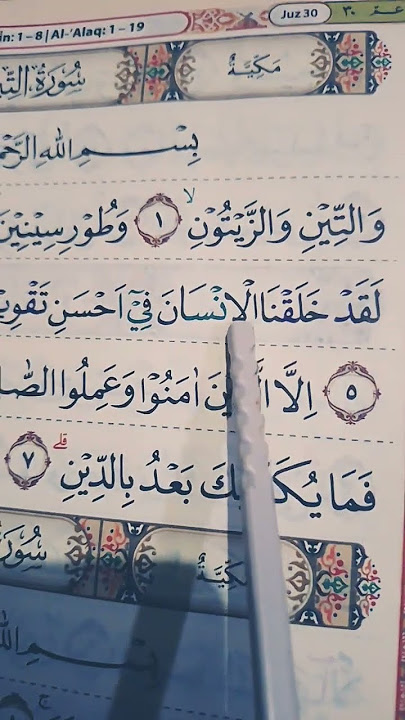 in: 1 – 8 | Al-‘Alaq: 1 – 19 Juz 30 ٣٠
مَكِّيَّةٌ سُوْرَةُ التِّ
بِسْمِ اللهِ الرَّحْ
وَالتِّيْنِ وَالزَّيْتُوْنِۙ ١ وَطُوْرِ سِيْنِيْنَ
لَقَدْ خَلَقْنَا الْاِنْسَانَ فِيْٓ اَحْسَنِ تَقْوِيْ
٥ اِلَّا الَّذِيْنَ اٰمَنُوْا وَعَمِلُوا الصّٰ
فَمَا يُكَذِّبُكَ بَعْدُ بِالدِّيْنِۗ ٧
مَكِّيَّةٌ سُوْرَ
بِسْمِ اللهِ